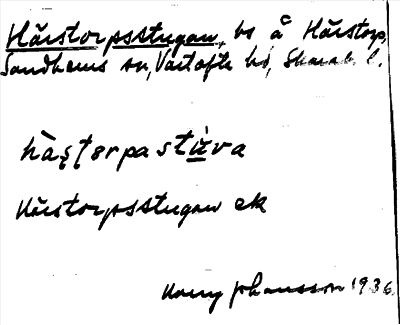 Härstorpsstugan, bs å Härstorp,
Sandhems sn, Vartofta hd, Skarab. l.
hàʂʈorpastùva
Härstorpsstugan ek
Harry Johansson 1936.